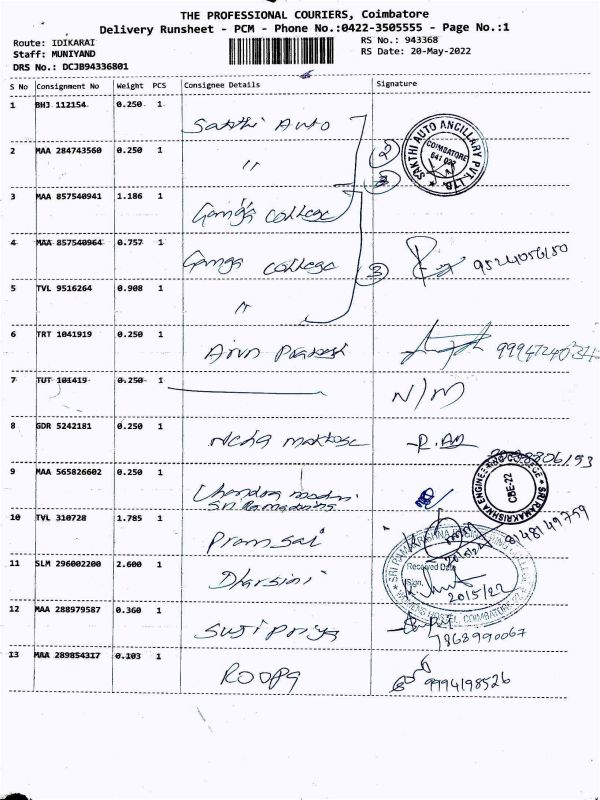 THE PROFESSIONAL COURIERS, Coimbatore
Delivery Runsheet - PCM - Phone No.:0422-3505555 - Page No.:1
Route: IDIKARAI
RS No.: 943368
Staff: MUNIYAND
RS Date: 20-May-2022
DRS No.: DCJB94336801
S No Consignment No Weight PCS Consignee Details Signature
1 BHJ 112154 0.250 1 Sakthi Auto
SAKTHI AUTO ANCILLARY PVT. LTD.
COIMBATORE
2 MAA 284743560 0.250 1 " 2
3 MAA 857540941 1.186 1 Ganga College
4 MAA 857540964 0.757 1 Ganga College 3
5 TVL 9516264 0.908 1 "
6 TRT 1041919 0.250 1 Arun Prakash
7 TUT 101419 0.250 1 N/M
8 GDR 5242181 0.250 1
9 MAA 565826602 0.250 1
SRI RAMAKRISHNA ENGINEERING COLLEGE
CBE-22
10 TVL 310728 1.785 1 Prem Sai 8148149759
11 SLM 296002200 2.600 1 Dharsini
Received Date
Sign.
20/5/22
12 MAA 288979587 0.360 1 Suji Priya 7868990067
13 MAA 289854317 0.103 1 Roopa 9994198526